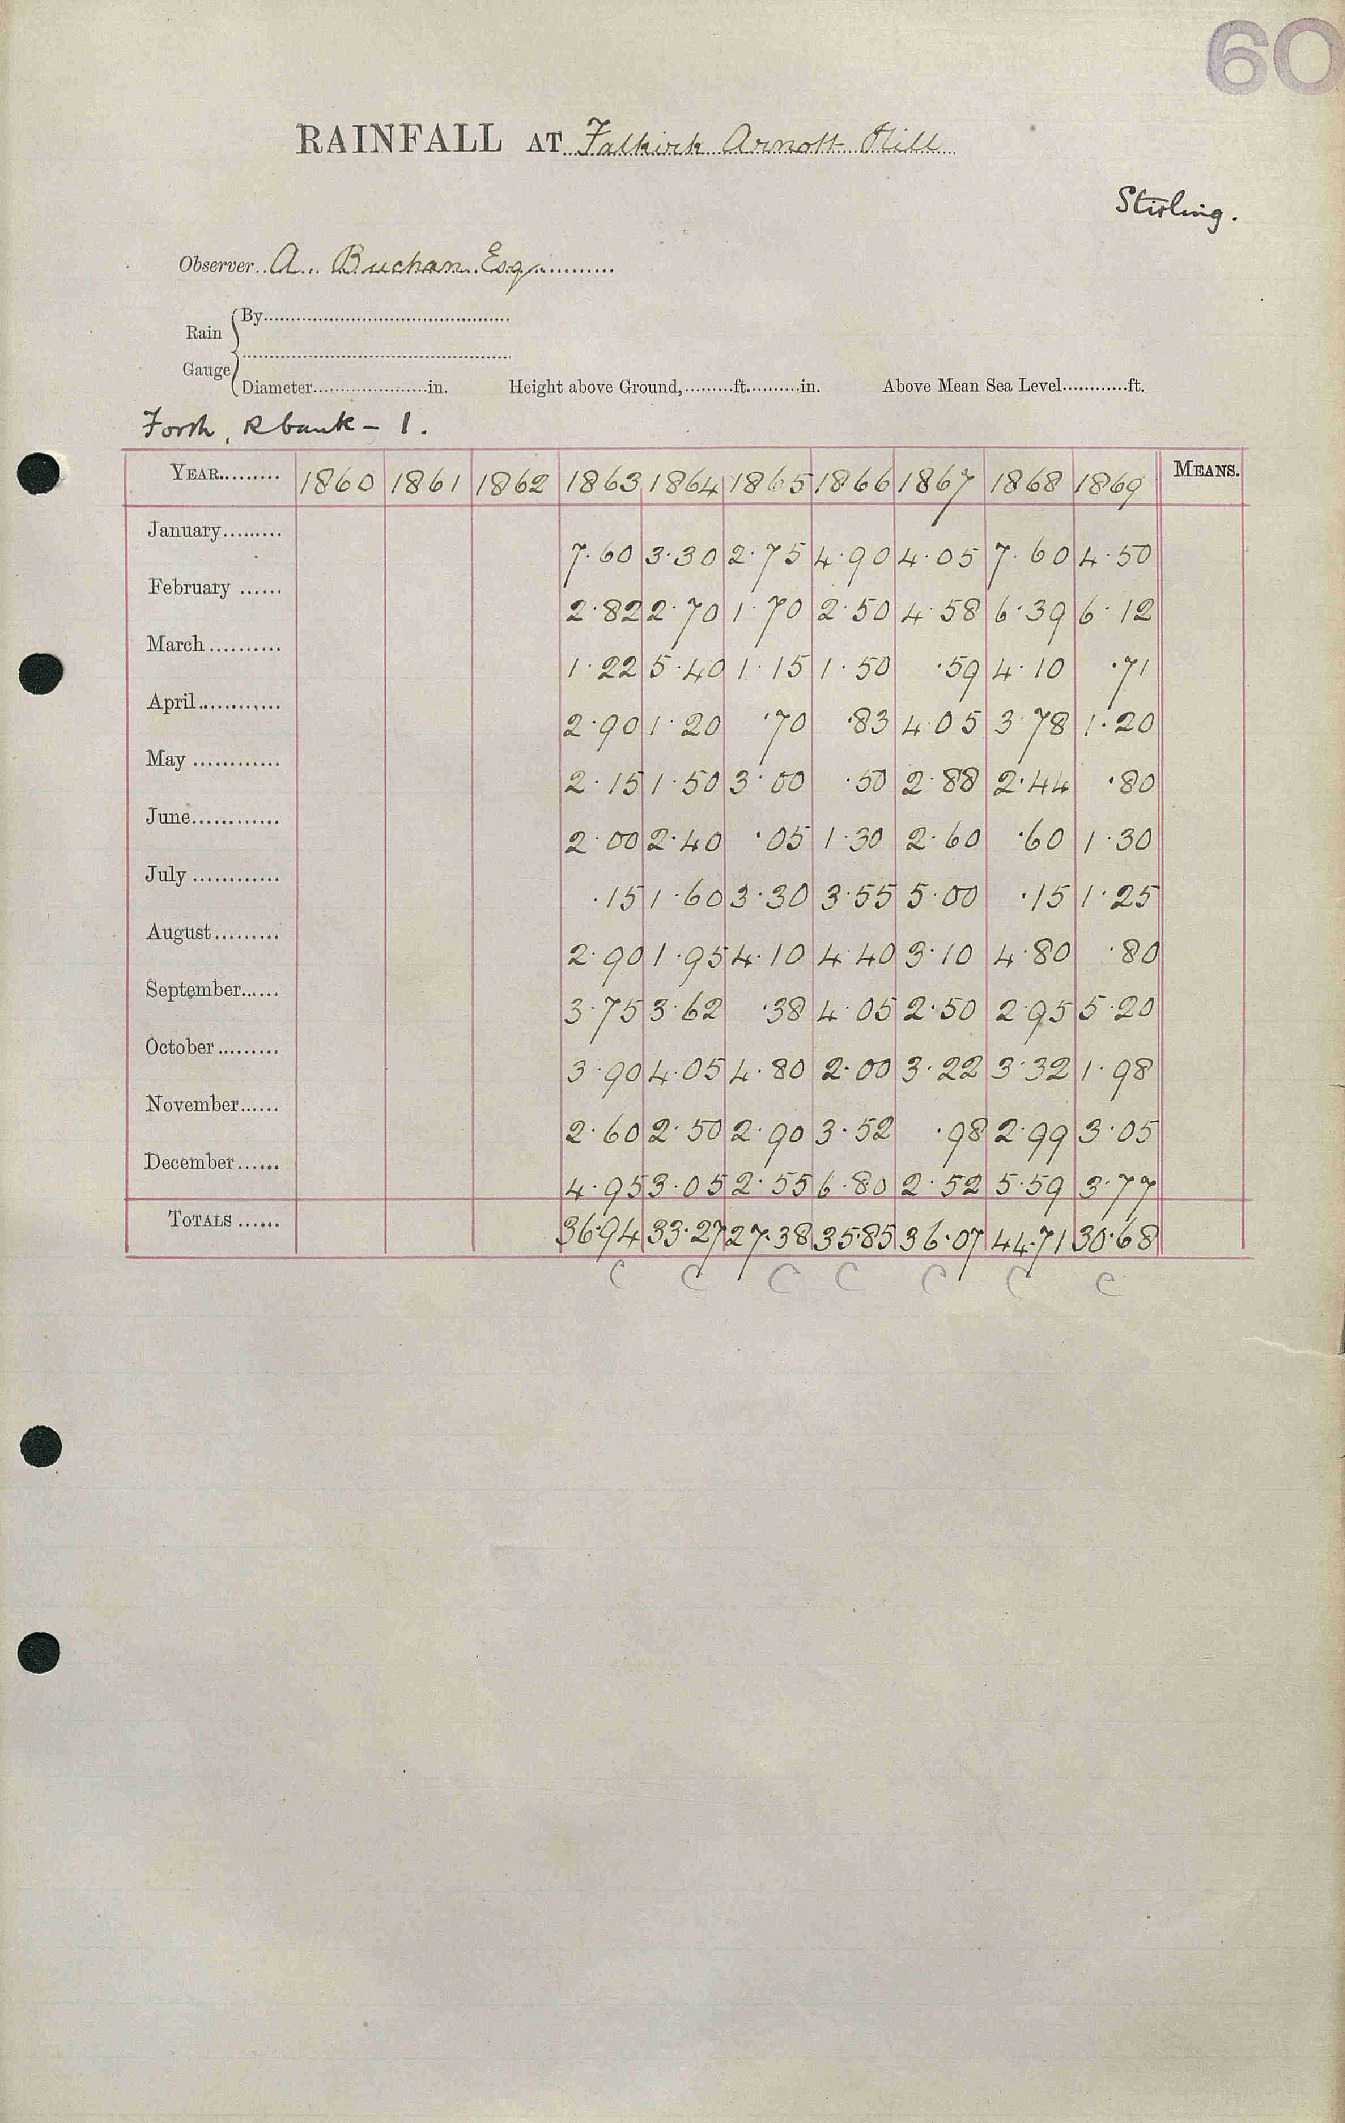 60
RAINFALL AT Falkirk Arnott Hill
Stirling.
Observer A. Buchan Esq
Rain Gauge By
Diameter in. Height above Ground, ft. in. Above Mean Sea Level ft.
Forth, R bank - 1.
YEAR 1860 1861 1862 1863 1864 1865 1866 1867 1868 1869 MEANS.
January 7.60 3.30 2.75 4.90 4.05 7.60 4.50
February 2.82 2.70 1.70 2.50 4.58 6.39 6.12
March 1.22 5.40 1.15 1.50 .59 4.10 .71
April 2.90 1.20 .70 .83 4.05 3.78 1.20
May 2.15 1.50 3.00 .50 2.88 2.44 .80
June 2.00 2.40 .05 1.30 2.60 .60 1.30
July .15 1.60 3.30 3.55 5.00 .15 1.25
August 2.90 1.95 4.10 4.40 3.10 4.80 .80
September 3.75 3.62 .38 4.05 2.50 2.95 5.20
October 3.90 4.05 4.80 2.00 3.22 3.32 1.98
November 2.60 2.50 2.90 3.52 .98 2.99 3.05
December 4.95 3.05 2.55 6.80 2.52 5.59 3.77
TOTALS 36.94 33.27 27.38 35.85 36.07 44.71 30.68
C C C C C C C